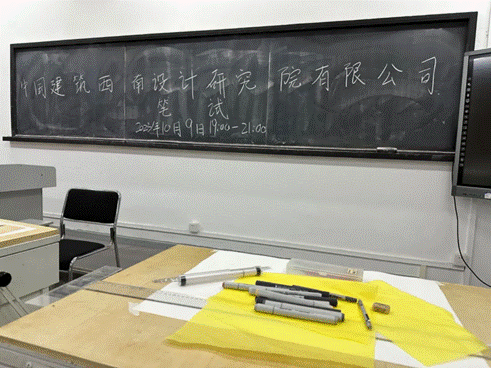 中国建筑西南设计研究院有限公司
笔试
2023年10月9日19:00-21:00